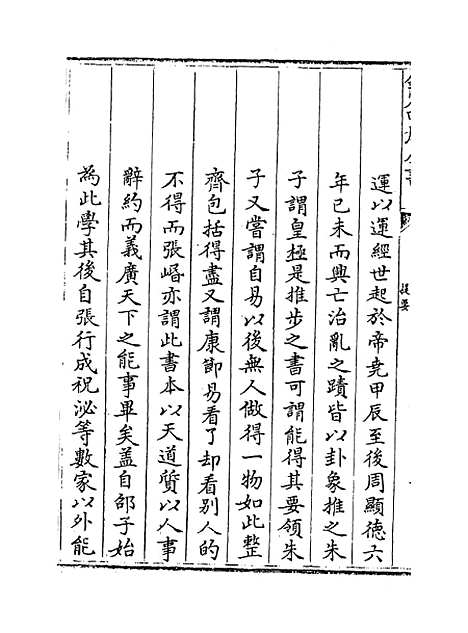 運以運經世起於帝堯甲辰至後周顯德六
年己未而興亡治亂之蹟皆以卦象推之朱
子謂皇極是推步之書可謂能得其要領朱
子又嘗謂自易以後無人做得一物如此整
齊包括得盡又謂康節易看了却看別人的
不得而張㟭亦謂此書本以天道質以人事
辭約而義廣天下之能事畢矣蓋自邵子始
為此學其後自張行成祝泌等數家以外能
提要